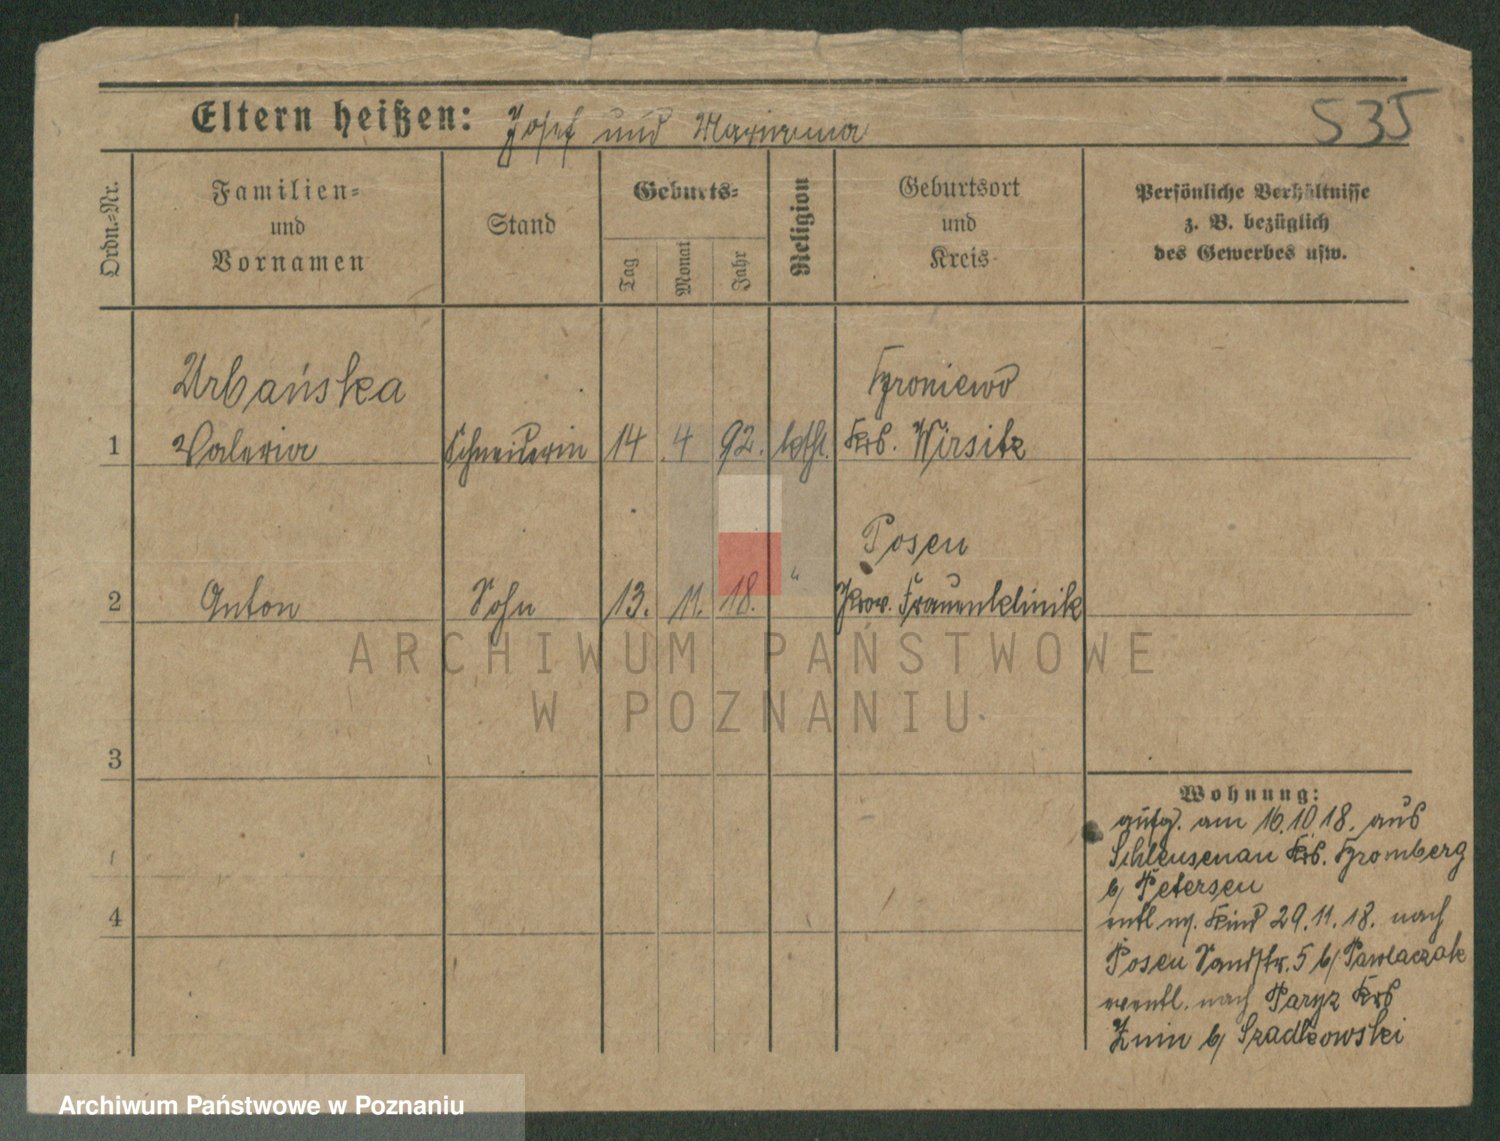 Eltern heißen: Josef und Marianna
535
Ordn.=Nr.
Familien=
und
Vornamen
Stand
Geburts=
Tag
Monat
Jahr
Religion
Geburtsort
und
Kreis
Persönliche Verhältnisse
z. B. bezüglich
des Gewerbes usw.
Urbańska
Broniewo
1 Valeria Schneiderin 14 4 92. kath. Krs. Wirsitz
Posen
2 Anton Sohn 13. 11. 18. " Prov. Frauenklinik
ARCHIWUM PAŃSTWOWE
W POZNANIU
3
Wohnung:
aufg. am 16.10.18. aus
Schleusenau Krs. Bromberg
b/ Petersen
4
entl. m. Kind 29.11.18. nach
Posen Sandstr. 5 b/ Pawlaczak
eventl. nach Paryz Krs
Znin b/ Szadkowski
Archiwum Państwowe w Poznaniu